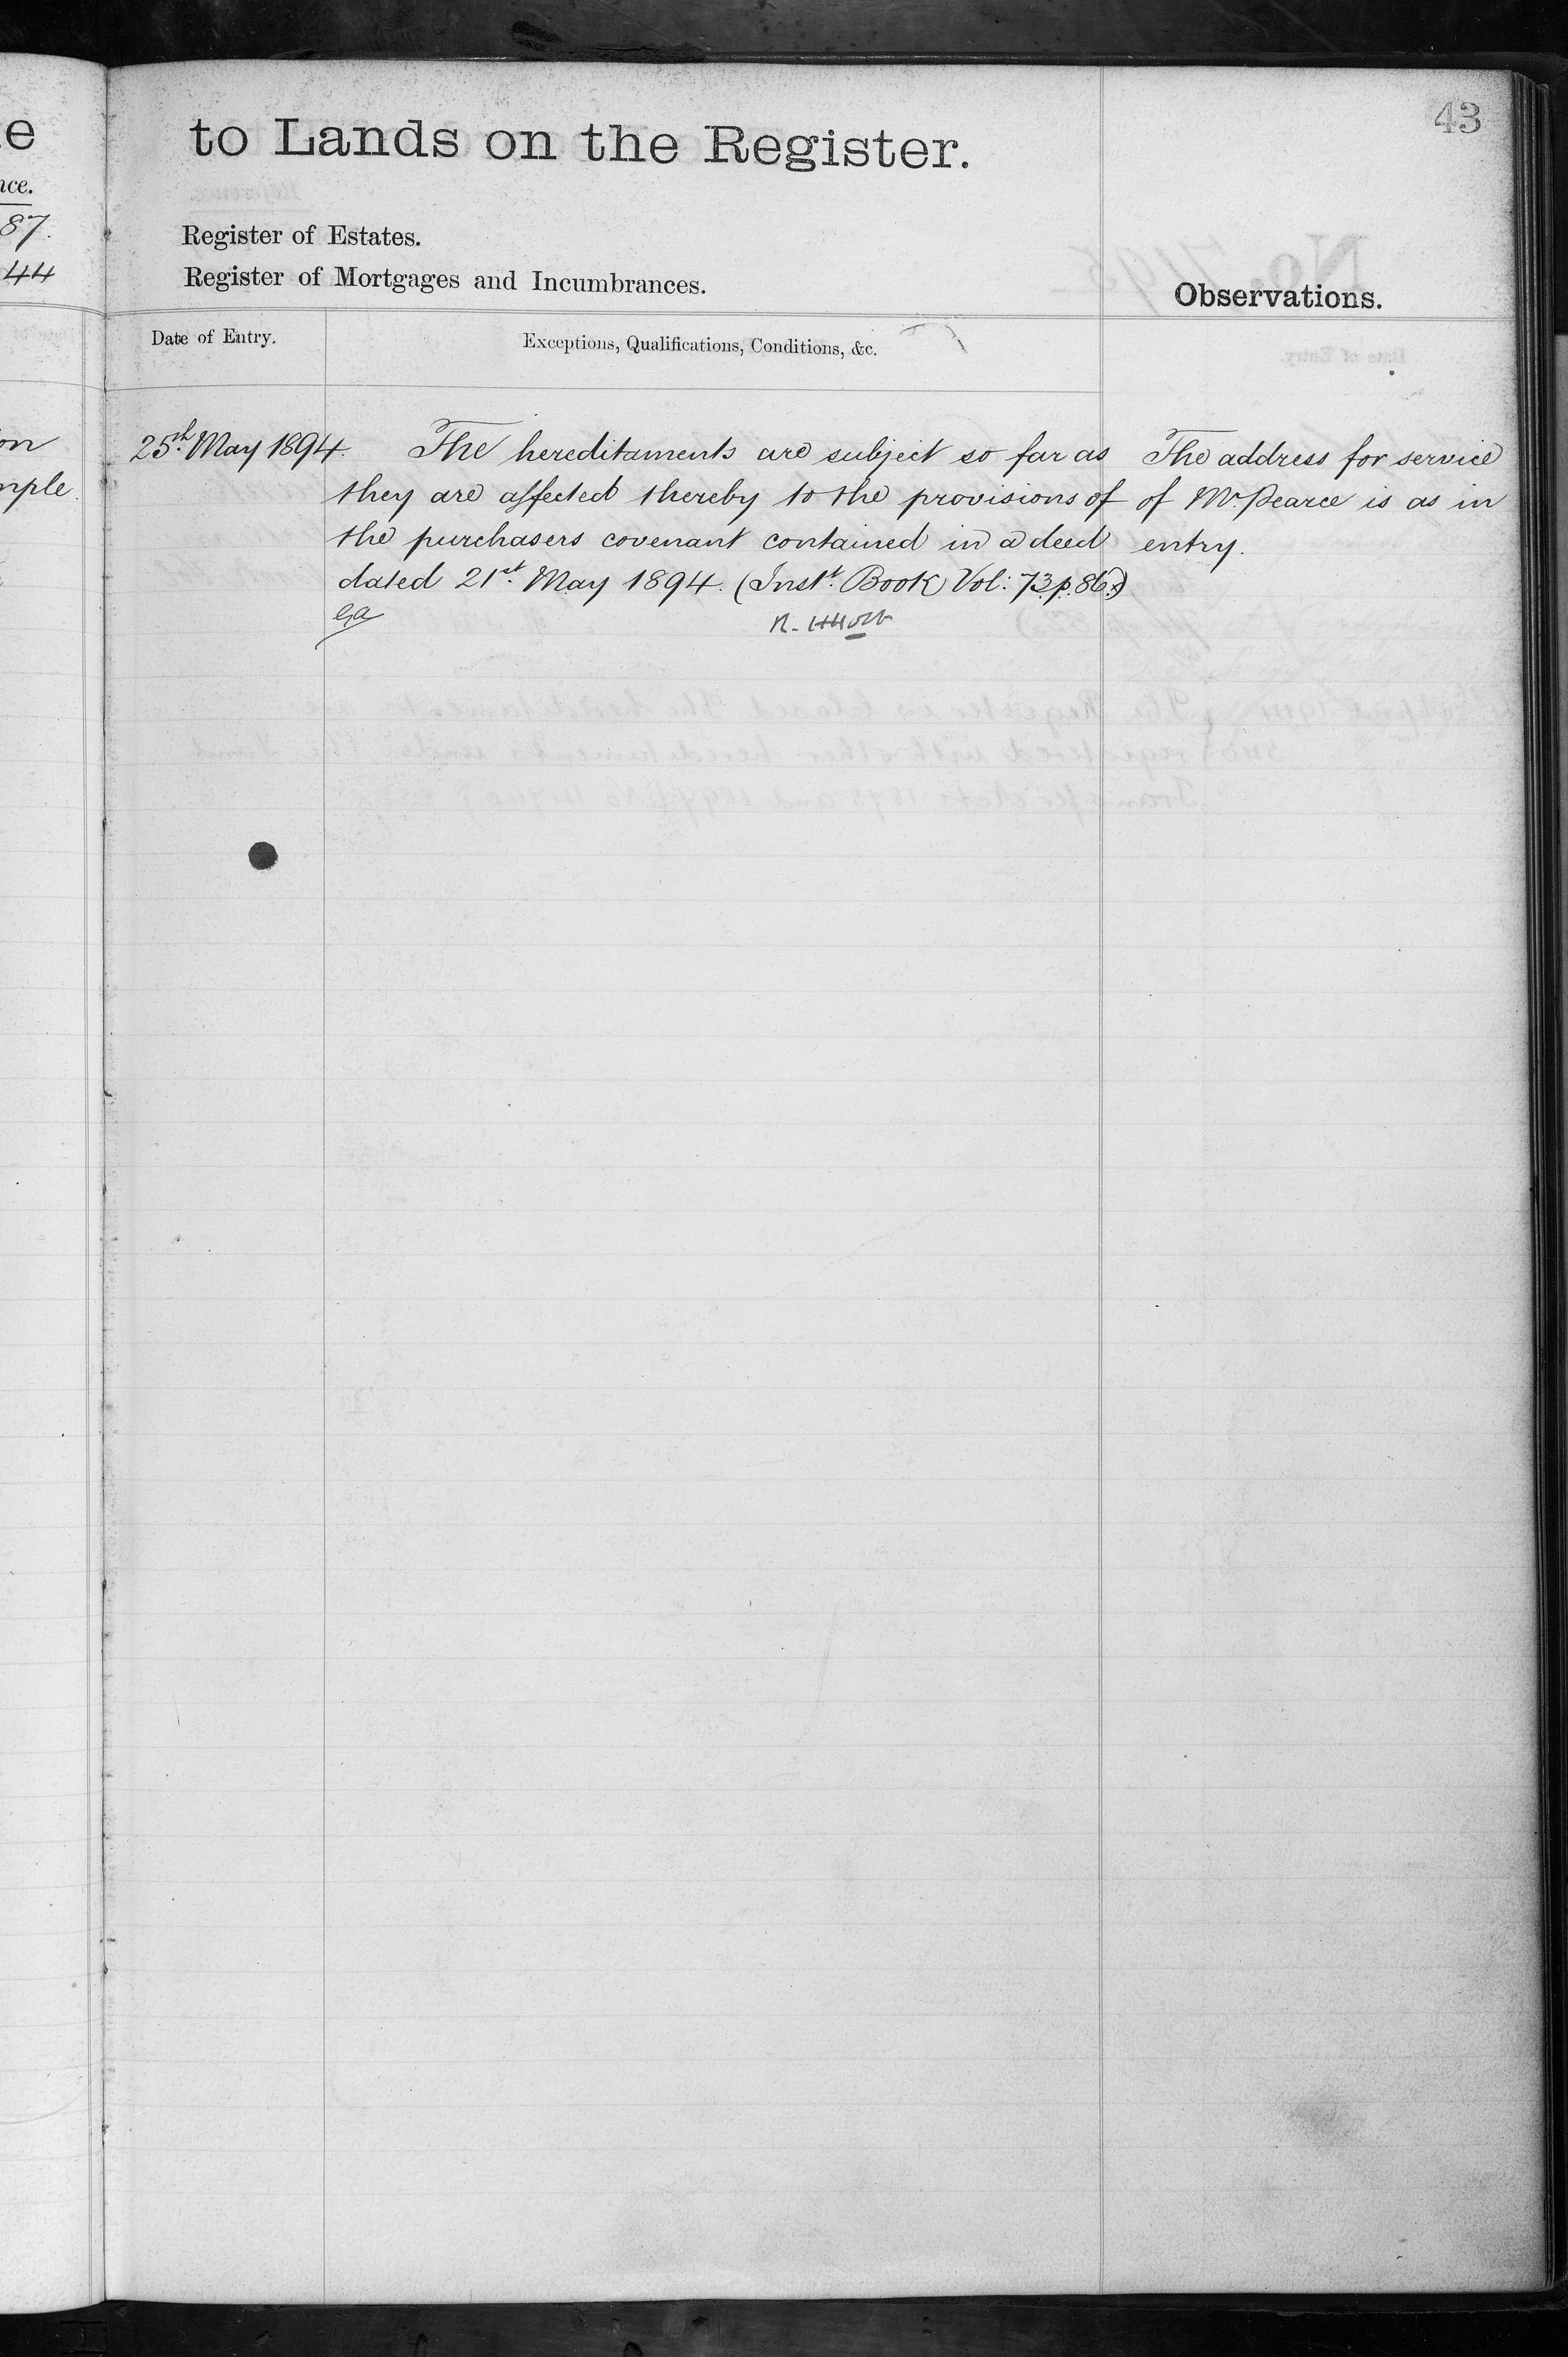 43
to Lands on the Register.
Register of Estates.
Register of Mortgages and Incumbrances.
Observations.
Date of Entry.
Exceptions, Qualifications, Conditions, &c.
25th May 1894.
The hereditaments are subject so far as
they are affected thereby to the provisions of
the purchasers covenant contained in a deed
dated 21st May 1894. (Instt. Book Vol: 73. p. 86.)
The address for service
of Mr. Pearce is as in
entry.
e
nce.
87.
44
on
mple.